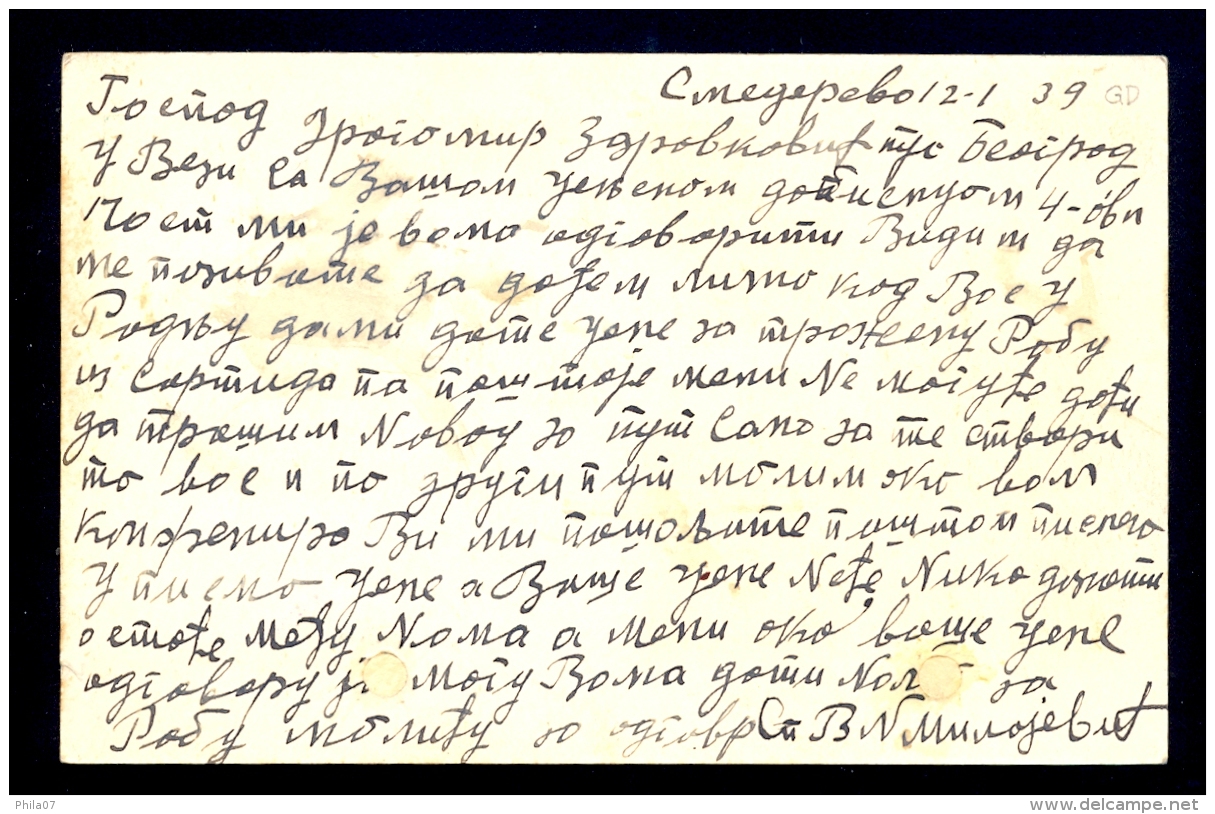 Смедерево 12-1 39 GD
Господ Драгомир Здровковић тгс Београд
У Вези са Вашом цењеном дописцом 4-ови
Част ми је вама одговорити Видим да
ме позивате за дођем лично код Вас У
Радњу дами дате цене за тражену Робу
из Сортида па пошто је мени Nе могуће доћи
да трашим Nовоц за пут Само за те ствари
то вас и по други пут молим ако вам
Ви ми пошаљите поштом писмо
У писмо Цене а Ваше цене Nеће Nико дознати
остаће међу Nома а мени ако ваше цене
одговарују могу Вама дати за
Робу молићу за одговр Сп В N Милојевић
Phila07
www.delcampe.net